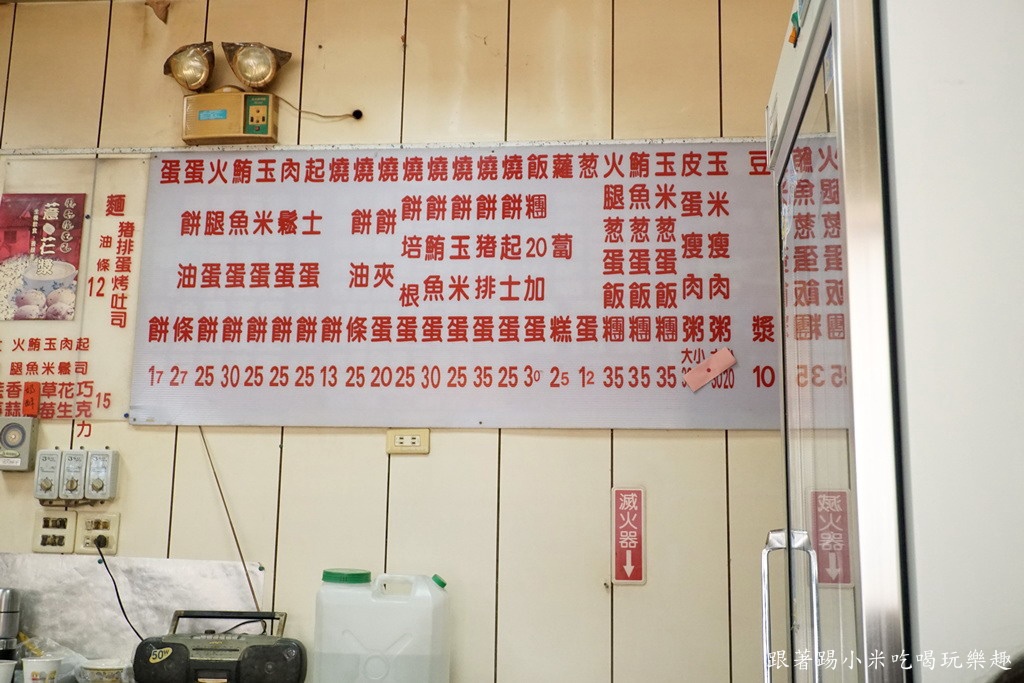 蛋餅 17
蛋餅油條 27
火腿蛋餅 25
鮪魚蛋餅 30
玉米蛋餅 25
肉鬆蛋餅 25
起士蛋餅 25
燒餅 13
燒餅油條 25
燒餅夾蛋 20
燒餅培根蛋 25
燒餅鮪魚蛋 30
燒餅玉米蛋 25
燒餅豬排蛋 35
燒餅起士蛋 25
飯糰20加蛋 30
蘿蔔糕 25
葱蛋 12
火腿葱蛋飯糰 35
鮪魚葱蛋飯糰 35
玉米葱蛋飯糰 35
皮蛋瘦肉粥 大小
玉米瘦肉粥 20
豆漿 10
薏仁漿
油條 12
豬排蛋烤吐司
火腿
鮪魚
玉米
肉鬆
起司
香蒜
草莓
花生
巧克力
15
滅火器
50W
跟著踢小米吃喝玩樂趣